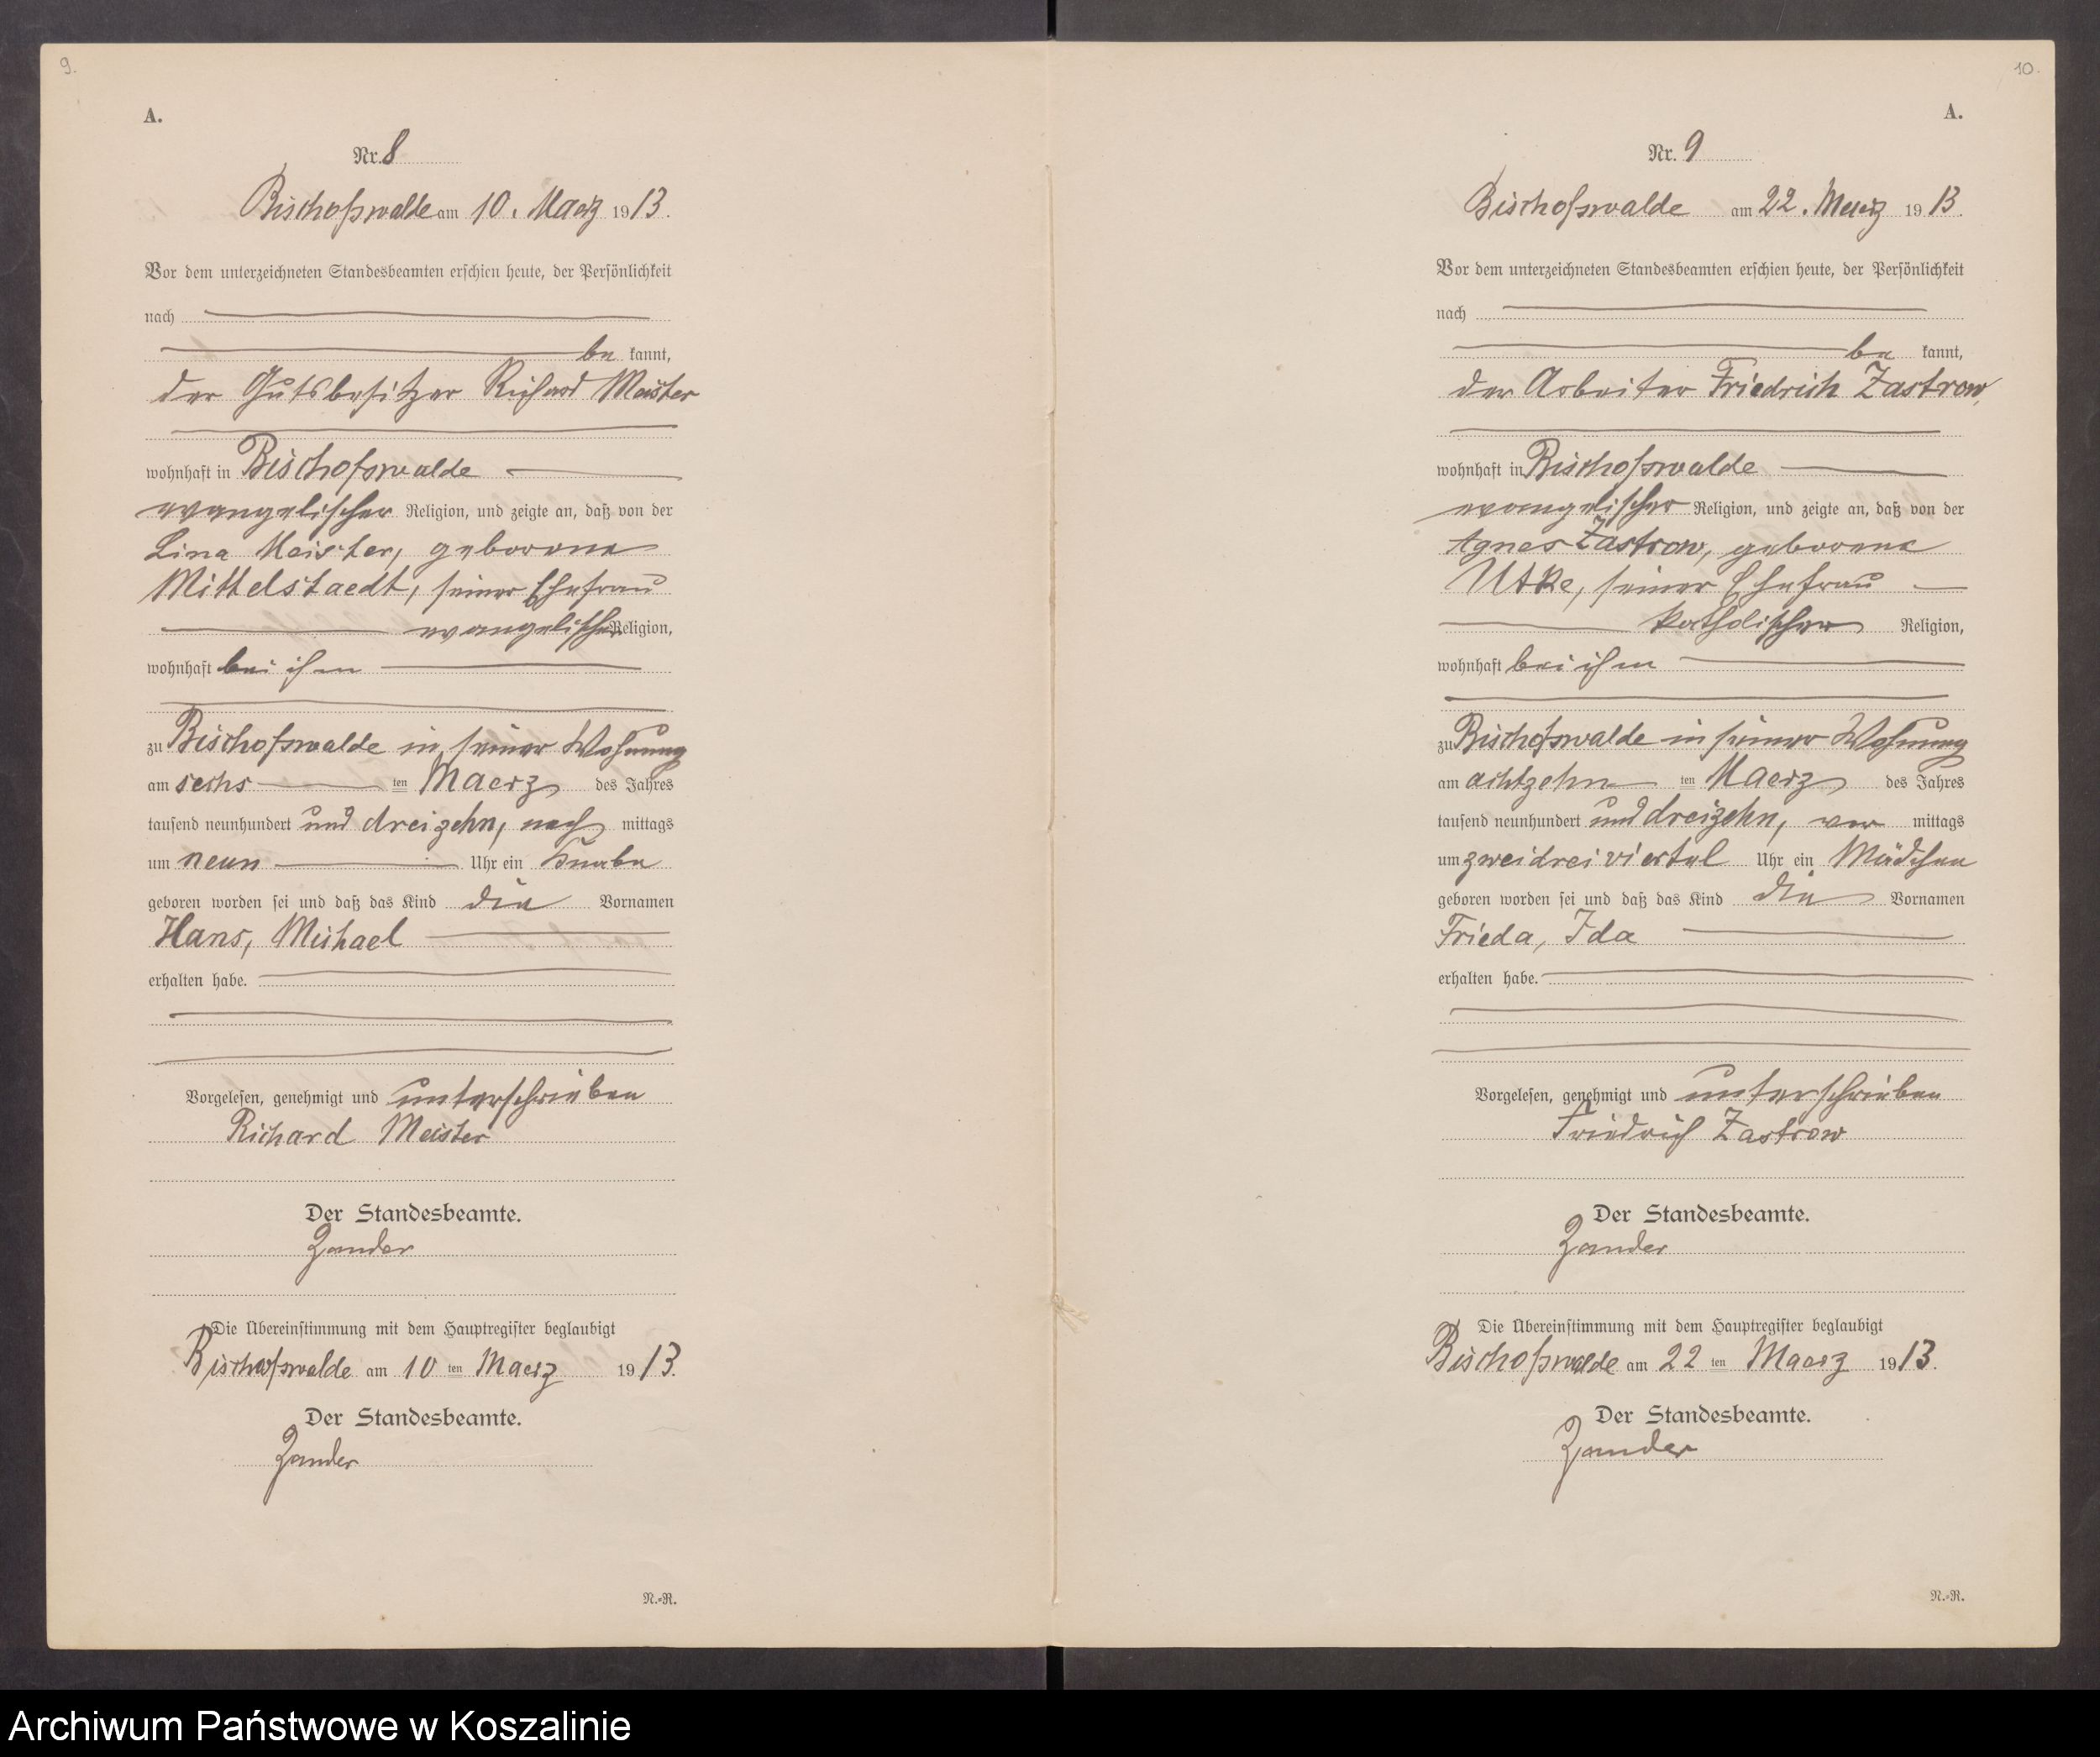 9.
A.
Nr. 8
Bischofswalde am 10. Maerz 1913.
Vor dem unterzeichneten Standesbeamten erschien heute, der Persönlichkeit
nach
be kannt,
der Gutsbesitzer Richard Meister
wohnhaft in Bischofswalde
evangelischer Religion, und zeigte an, daß von der
Lina Meister, geborene
Mittelstaedt, seiner Ehefrau
evangelischer Religion,
wohnhaft bei ihm
zu Bischofswalde in seiner Wohnung
am sechs ten Maerz des Jahres
tausend neunhundert und dreizehn, nach mittags
um neun Uhr ein Knabe
geboren worden sei und daß das Kind die Vornamen
Hans, Michael
erhalten habe.
Vorgelesen, genehmigt und unterschrieben
Richard Meister
Der Standesbeamte.
Zander
Die Übereinstimmung mit dem Hauptregister beglaubigt
Bischofswalde am 10 ten Maerz 1913.
Der Standesbeamte.
Zander
N.-R.
10.
A.
Nr. 9
Bischofswalde am 22. Maerz 1913.
Vor dem unterzeichneten Standesbeamten erschien heute, der Persönlichkeit
nach
be kannt,
der Arbeiter Friedrich Zastrow,
wohnhaft in Bischofswalde
evangelischer Religion, und zeigte an, daß von der
Agnes Zastrow, geborene
Utke, seiner Ehefrau
katholischer Religion,
wohnhaft bei ihm
zu Bischofswalde in seiner Wohnung
am achtzehn ten Maerz des Jahres
tausend neunhundert und dreizehn, vor mittags
um zweidreiviertel Uhr ein Mädchen
geboren worden sei und daß das Kind die Vornamen
Frieda, Ida
erhalten habe.
Vorgelesen, genehmigt und unterschrieben
Friedrich Zastrow
Der Standesbeamte.
Zander
Die Übereinstimmung mit dem Hauptregister beglaubigt
Bischofswalde am 22 ten Maerz 1913.
Der Standesbeamte.
Zander
N.-R.
Archiwum Państwowe w Koszalinie